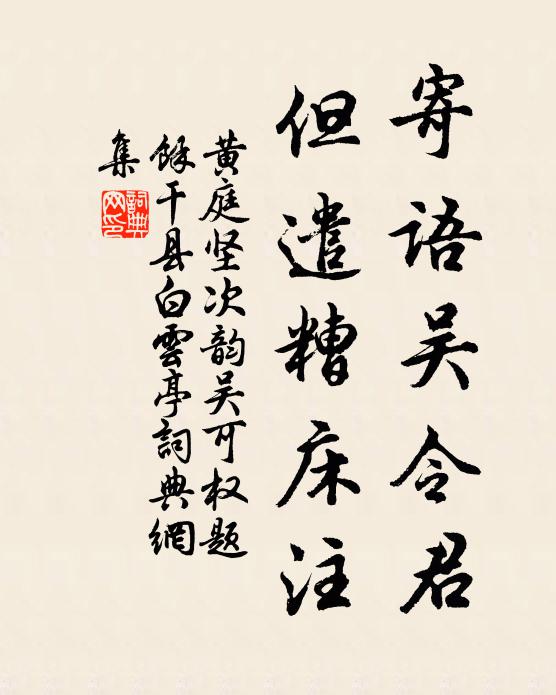 寄语吴令君
但遣糟床注
黄庭坚次韵吴可权题
馀干县白雲亭詞典網
集
詞典網印